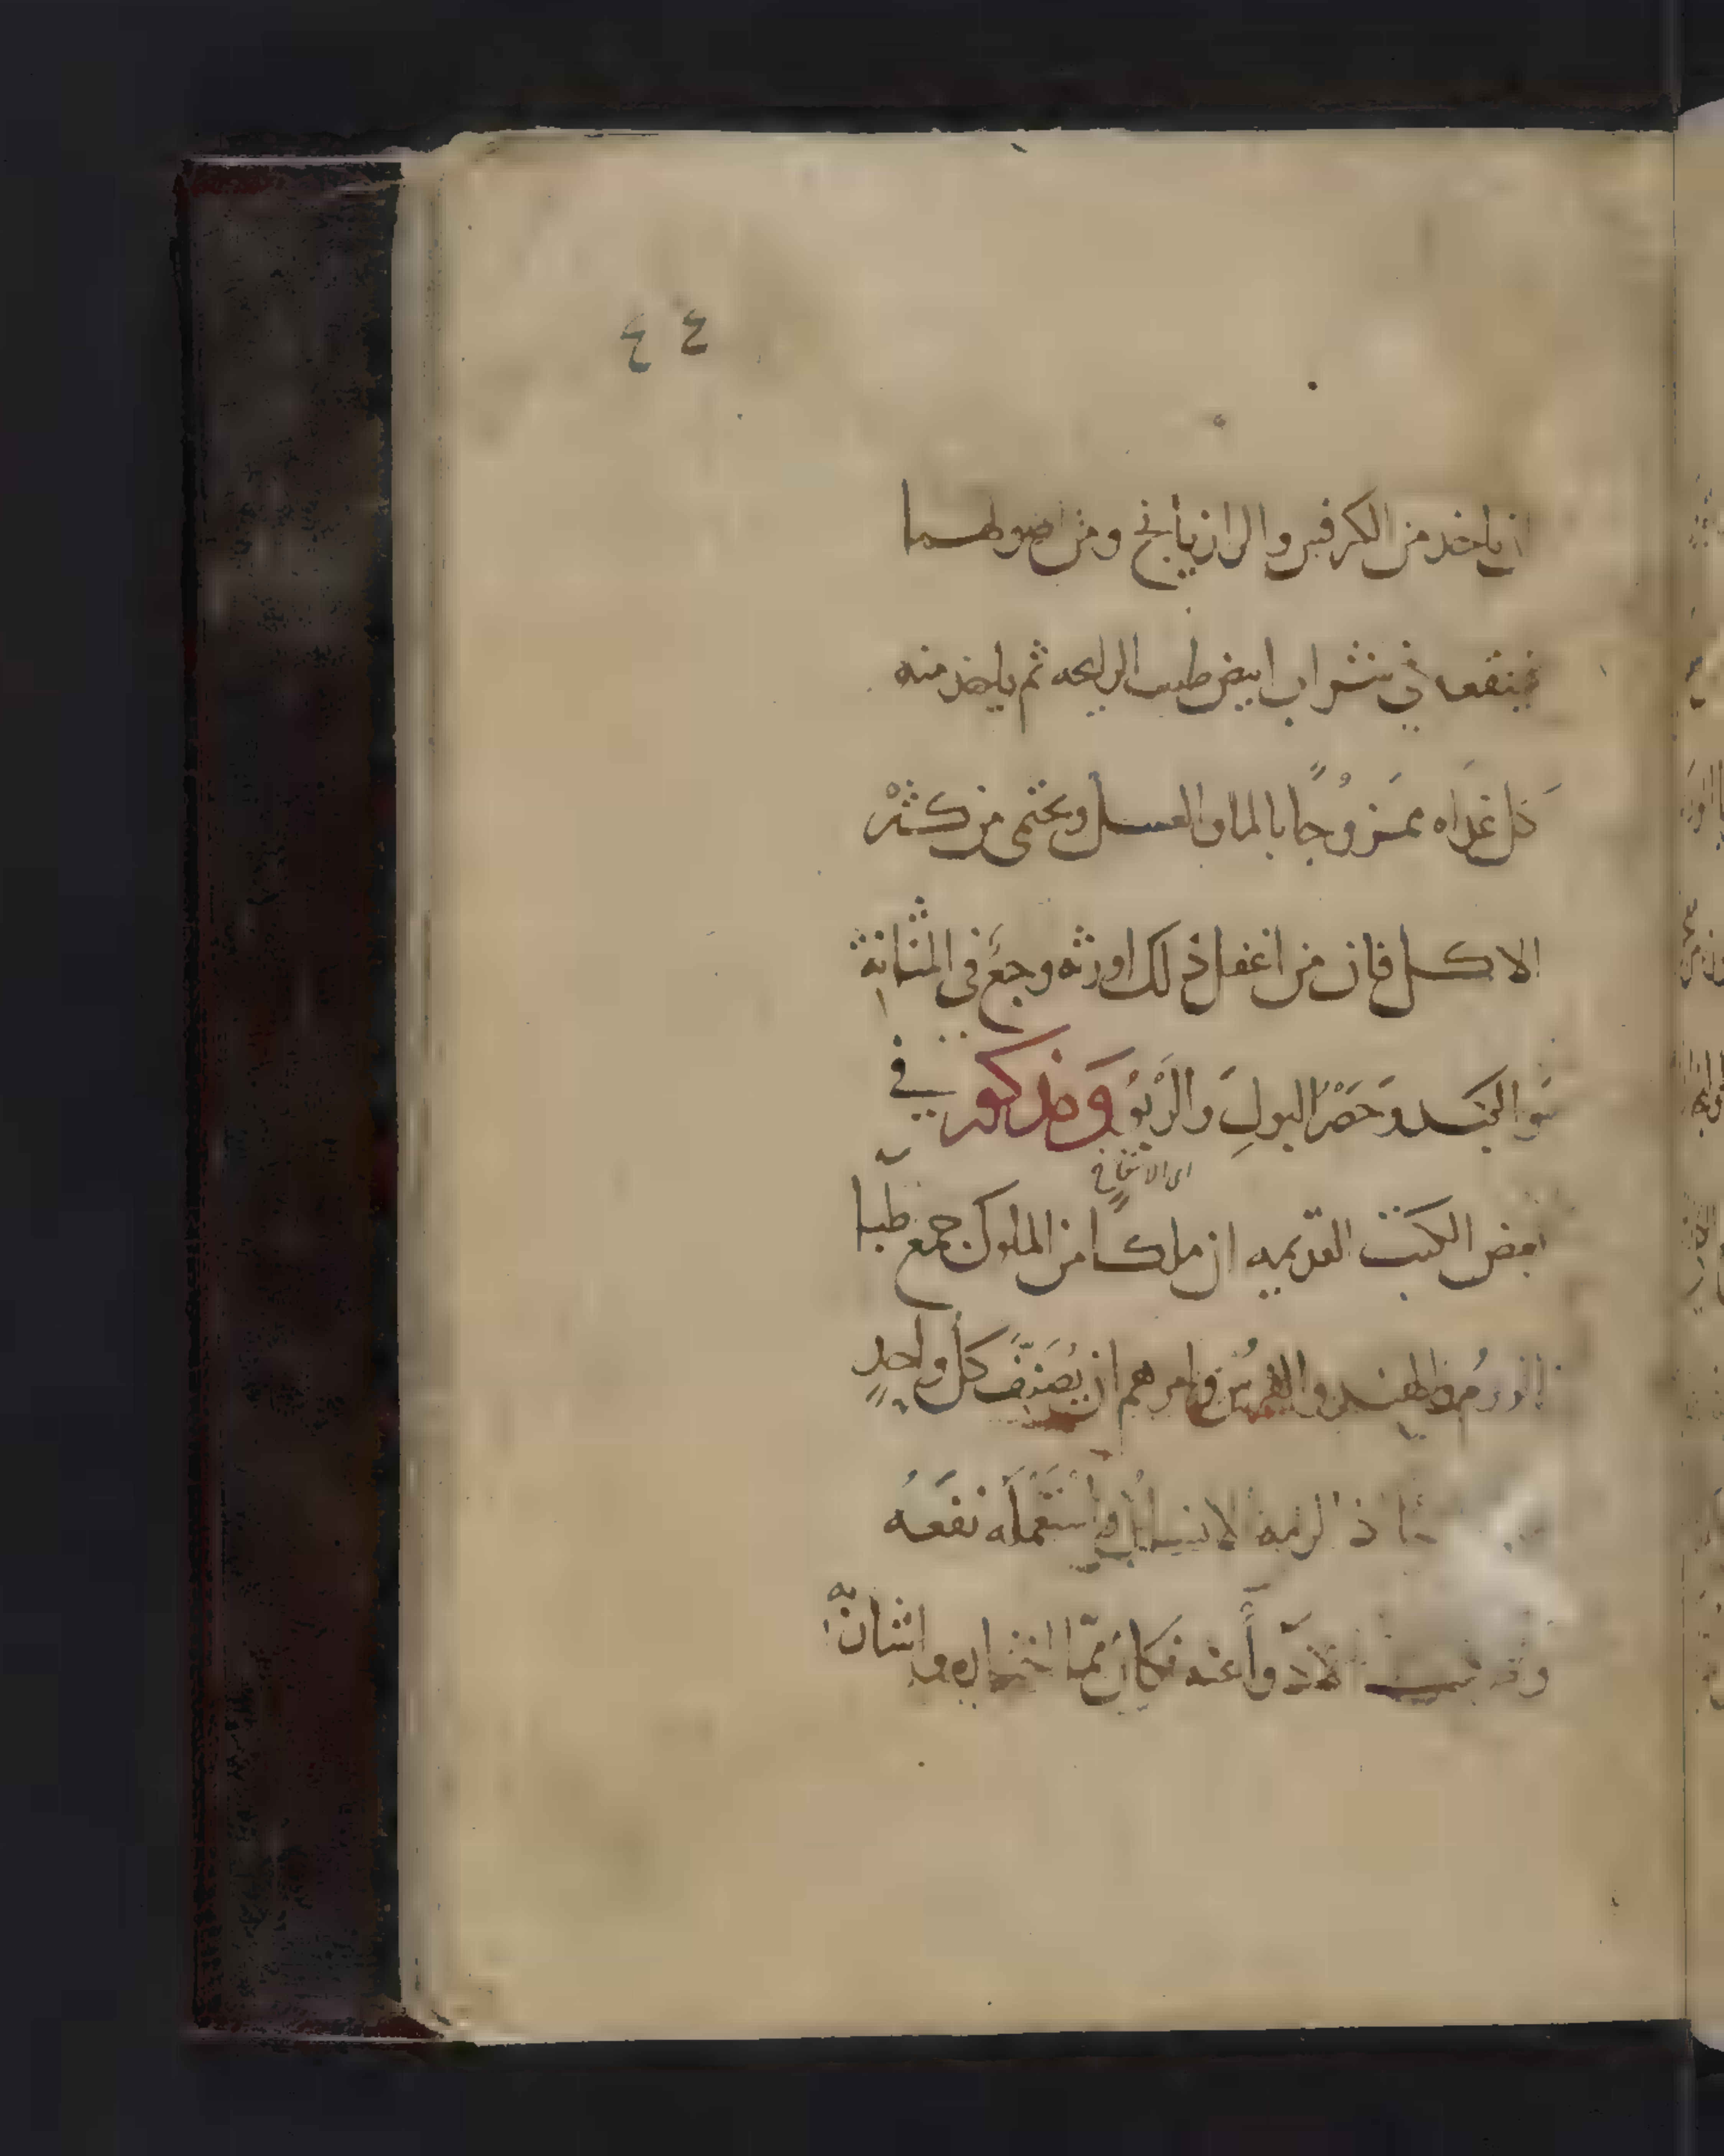 ٤٤
ان ياخذ من الكرفس والرازيانج ومن اصولهما
فينقعه في شراب ابيض طيب الرايحه ثم ياخذ منه
كل غداه ممزوجًا بالما والعسل ويحتمى من كثرة
الاكل فان من اغفل ذلك اورثه وجع في المثانة
والكبد وحصر البولِ والرَبْوُ ومذكور في
اى الانتفاخ
بعض الكتب القديمه ان ملكًا من الملوك جمع طبا
الروم والهند والفرس وامرهم ان يُصَنِّفَ كل واحدٍ
اذا لزمه الانسان واسْتَعْمَلَه نفَعَهُ
الادوآ عنه فكان ممّا اختاره واشاربه